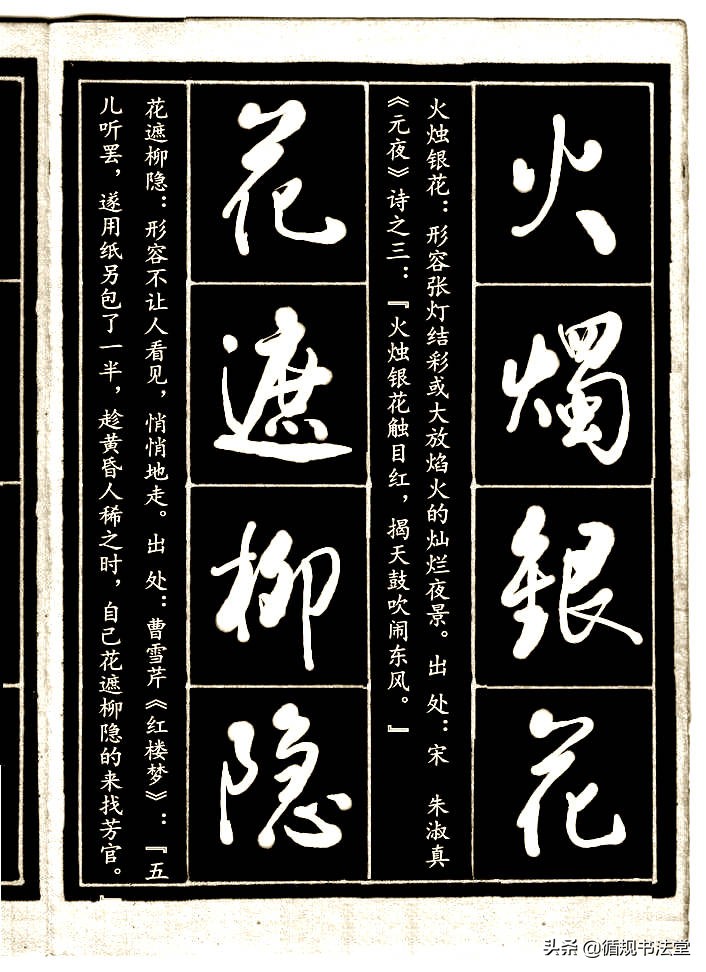 火燭銀花
火烛银花：形容张灯结彩或大放焰火的灿烂夜景。出 处：宋 朱淑真
《元夜》诗之三：『火烛银花触目红，揭天鼓吹闹东风。』
花遮柳隐
花遮柳隐：形容不让人看见，悄悄地走。出 处：曹雪芹《红楼梦》：『五
儿听罢，遂用纸另包了一半，趁黄昏人稀之时，自己花遮柳隐的来找芳官。』
头条 @循规书法堂